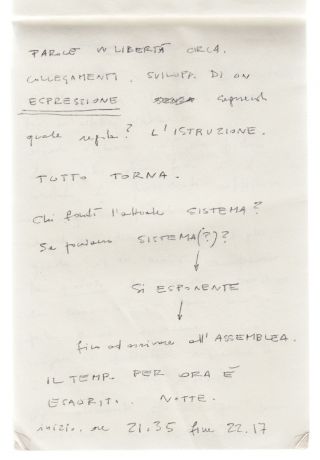 PAROLE IN LIBERTÀ CIRCA.
COLLEGAMENTI. SVILUPP. DI UN
ESPRESSIONE SENZA seguendo
quale regola? L'ISTRUZIONE.
TUTTO TORNA.
Chi fondò l'attuale SISTEMA?
Se possiamo SISTEMA(?)?
↓
SI ESPONENTE
↓
fino ad arrivare all'ASSEMBLEA.
IL TEMP. PER ORA È
ESAURITO. NOTTE.
inizio. ore 21.35 fine 22.17